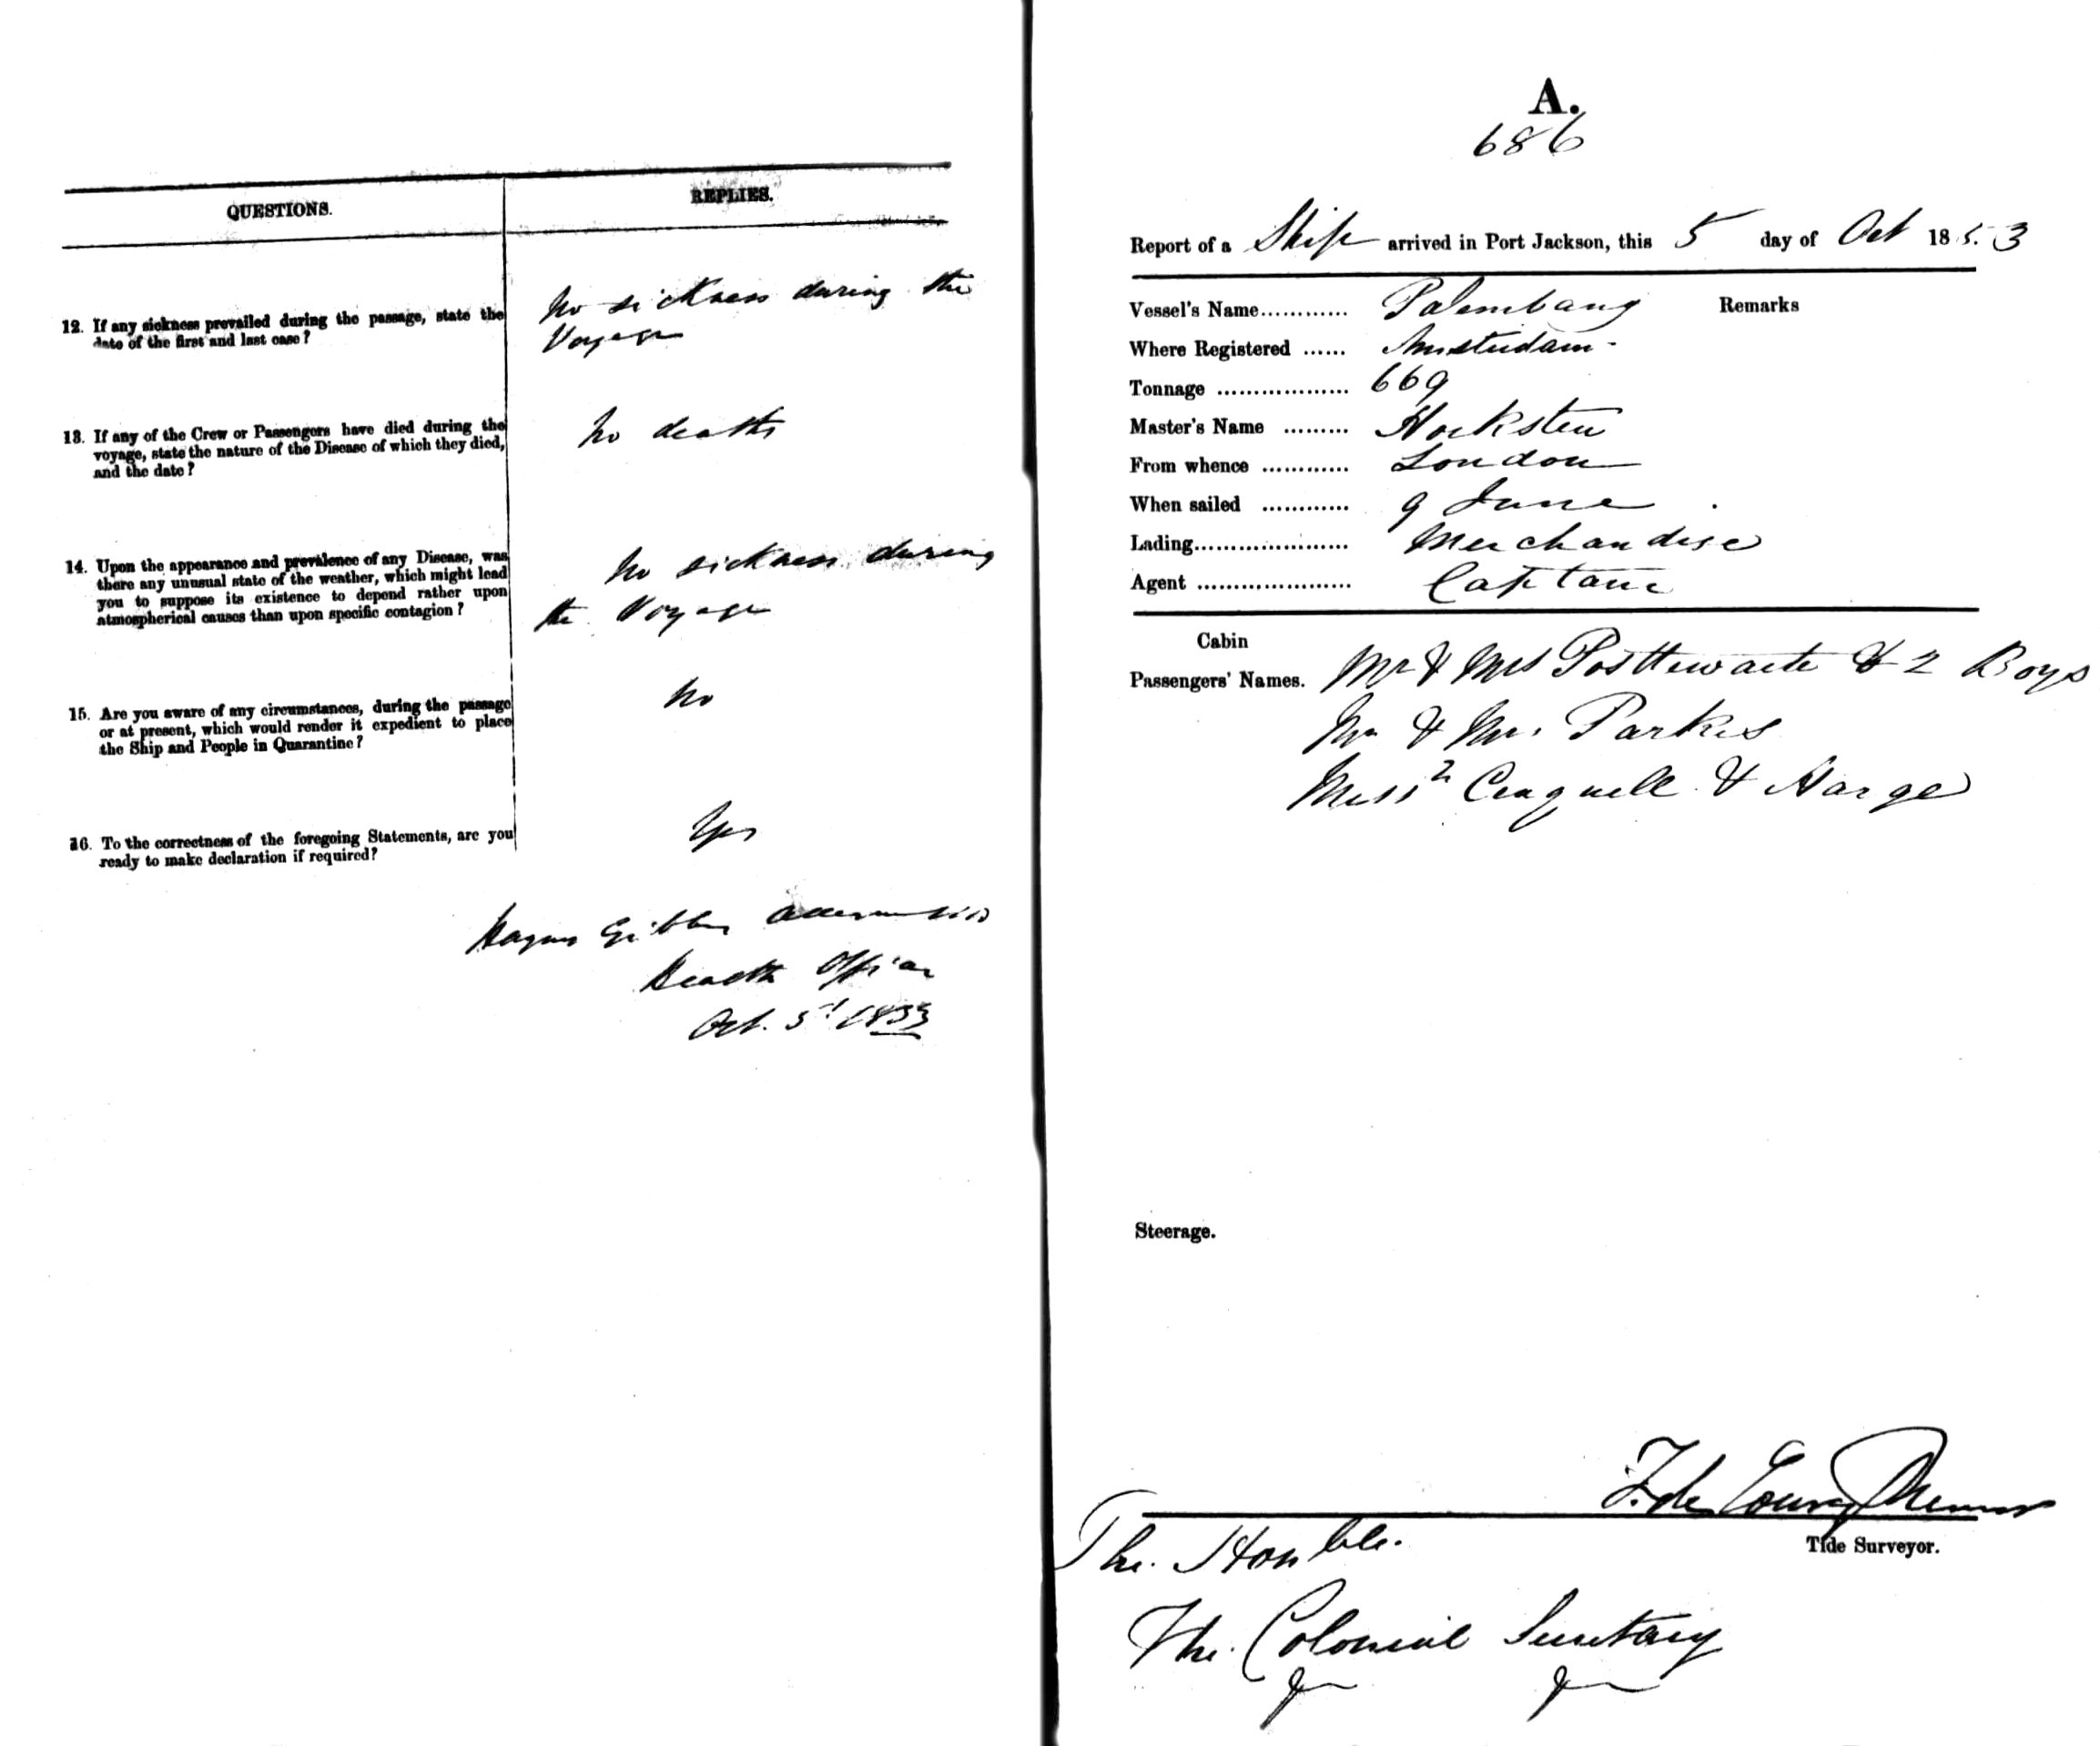 QUESTIONS.
REPLIES.
12. If any sickness prevailed during the passage, state the
date of the first and last case?
No sickness during the
Voyage
13. If any of the Crew or Passengers have died during the
voyage, state the nature of the Disease of which they died,
and the date?
No deaths
14. Upon the appearance and prevalence of any Disease, was
there any unusual state of the weather, which might lead
you to suppose its existence to depend rather upon
atmospherical causes than upon specific contagion?
No sickness during
the Voyage
15. Are you aware of any circumstances, during the passage
or at present, which would render it expedient to place
the Ship and People in Quarantine?
No
16. To the correctness of the foregoing Statements, are you
ready to make declaration if required?
Yes
Health Officer
Oct. 5th 1853
A.
686
Report of a Ship arrived in Port Jackson, this 5 day of Oct 1853
Vessel's Name............ Palembang Remarks
Where Registered ...... Amsterdam
Tonnage .................. 669
Master's Name ......... Hoeksten
From whence ............ London
When sailed ............ 9 June
Lading..................... Merchandise
Agent ..................... Captain
Cabin
Passengers' Names. Mr & Mrs Posttewaite & 2 Boys
Mr & Mrs. Parkes
& Harge
Steerage.
Tide Surveyor.
The Honble.
The Colonial Secretary